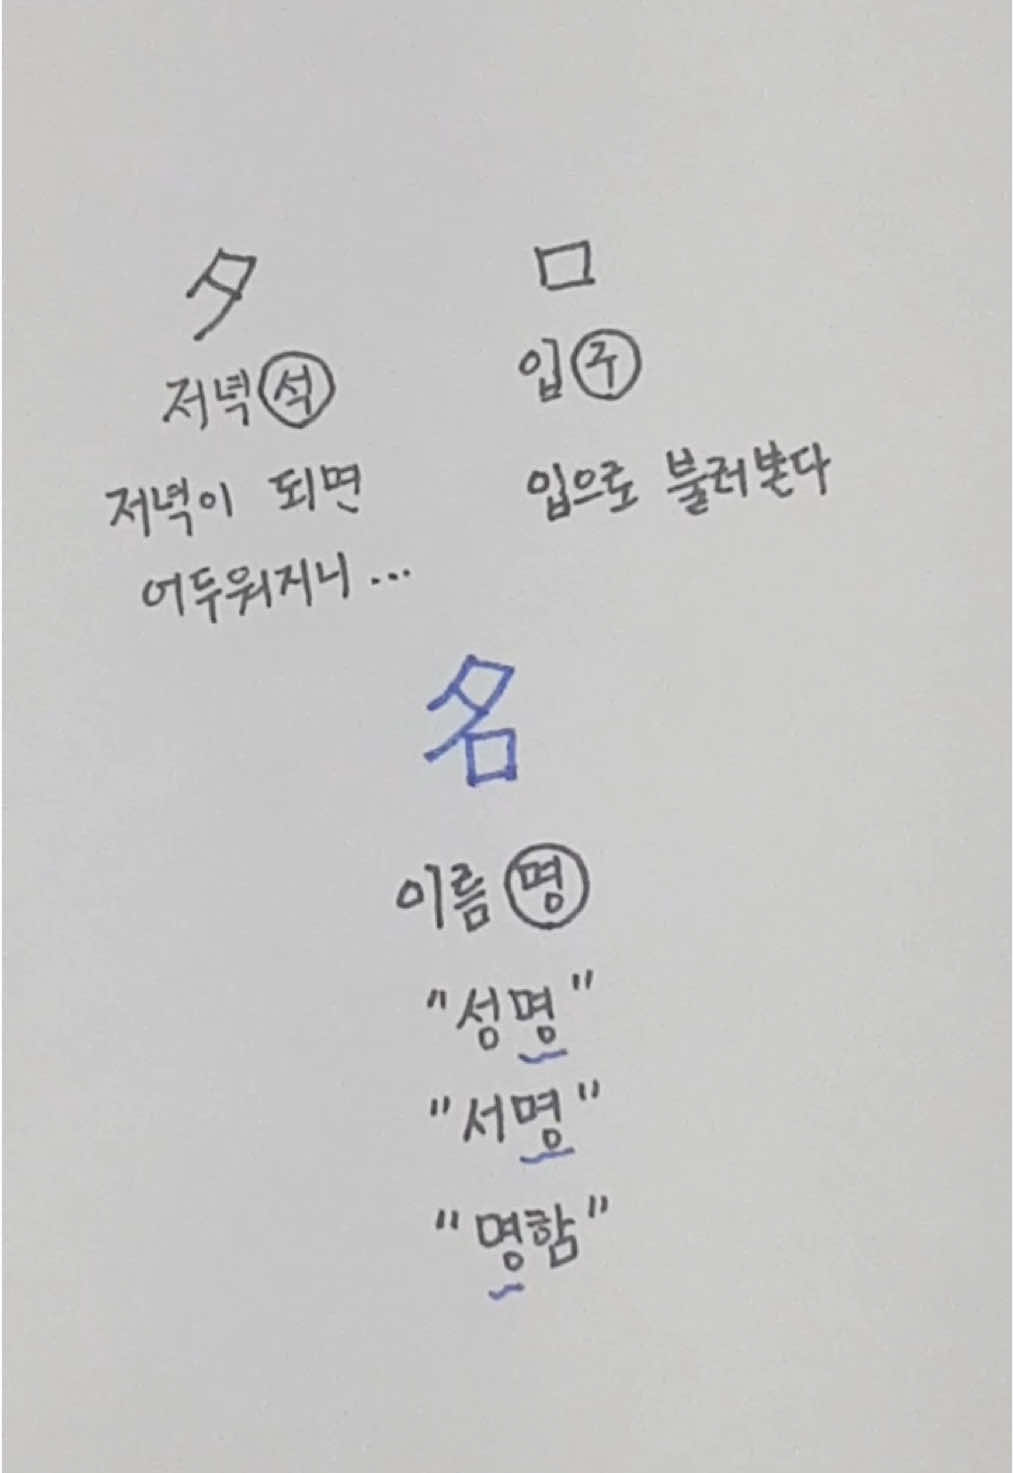 夕 口
저녁 석 입 구
저녁이 되면 입으로 불러본다
어두워지니...
名
이름 명
"성명"
"서명"
"명함"